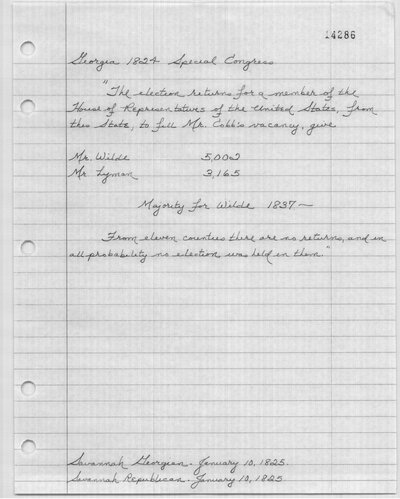 14286
Georgia 1824 Special Congress
"The election returns for a member of the
House of Representatives of the United States, from
this State, to fill Mr. Cobb's vacancy, give
Mr. Wilde 5,002
Mr Lyman 3,165
Majority for Wilde 1837—
From eleven counties there are no returns, and in
all probability no election was held in them."
Savannah Georgian. January 10, 1825.
Savannah Republican. January 10, 1825